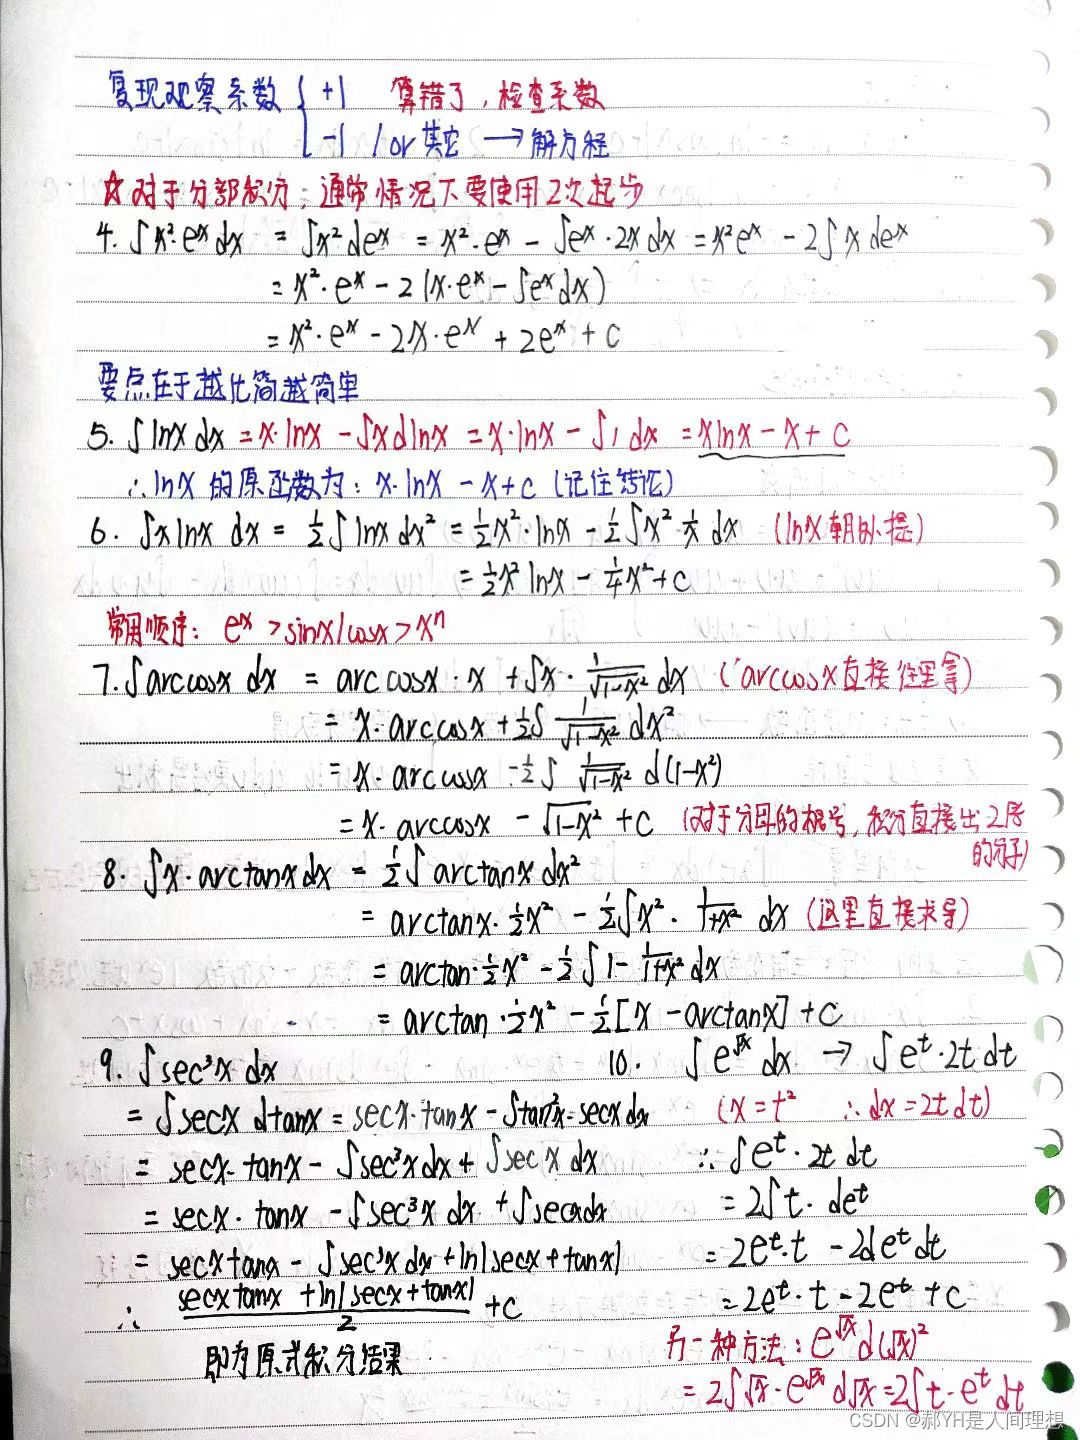 复现观察系数 { +1 算错了，检查系数
-1 / or 其它 → 解方程
☆对于分部积分，通常情况不要使用2次起步
4. ∫x²·eˣdx = ∫x²deˣ = x²·eˣ - ∫eˣ·2xdx = x²eˣ - 2∫xdeˣ
= x²·eˣ - 2(x·eˣ - ∫eˣdx)
= x²·eˣ - 2x·eˣ + 2eˣ + C
要点在于越化简越简单
5. ∫lnxdx = x·lnx - ∫xdlnx = x·lnx - ∫1dx = xlnx - x + C
∴lnx的原函数为：x·lnx - x + C (记住结论)
6. ∫xlnx dx = ½∫lnxdx² = ½x²·lnx - ½∫x²·1/x dx (lnx朝外提)
= ½x²lnx - ¼x² + C
常用顺序：eˣ > sinx/cosx > xⁿ
7. ∫arccosx dx = arccosx·x + ∫x·1/√(1-x²) dx (arccosx直接往里拿)
= x·arccosx + ½∫ 1/√(1-x²) dx²
= x·arccosx - ½∫ 1/√(1-x²) d(1-x²)
= x·arccosx - √(1-x²) + C (对于分母的根号，积分直接出2倍
的分子)
8. ∫x·arctanxdx = ½∫arctanxdx²
= arctanx·½x² - ½∫x²·1/(1+x²) dx (这里直接求导)
= arctan·½x² - ½∫1 - 1/(1+x²) dx
= arctan·½x² - ½[x - arctanx] + C
9. ∫sec³xdx
10. ∫e^√x dx → ∫eᵗ·2tdt
= ∫secx dtanx = secx·tanx - ∫tan²x·secxdx
(x = t² ∴dx = 2tdt)
= secx·tanx - ∫sec³xdx + ∫secxdx
∴∫eᵗ·2tdt
= secx·tanx - ∫sec³xdx + ∫secxdx
= 2∫t·deᵗ
= secxtanx - ∫sec³xdx + ln|secx + tanx|
= 2eᵗ·t - 2∫eᵗdt
∴ (secxtanx + ln|secx + tanx|)/2 + C
= 2eᵗ·t - 2eᵗ + C
即为原式积分结果
另一种方法：e^√x d(√x)²
= 2∫√x·e^√x d√x = 2∫t·eᵗdt
CSDN @郝YH是人间理想